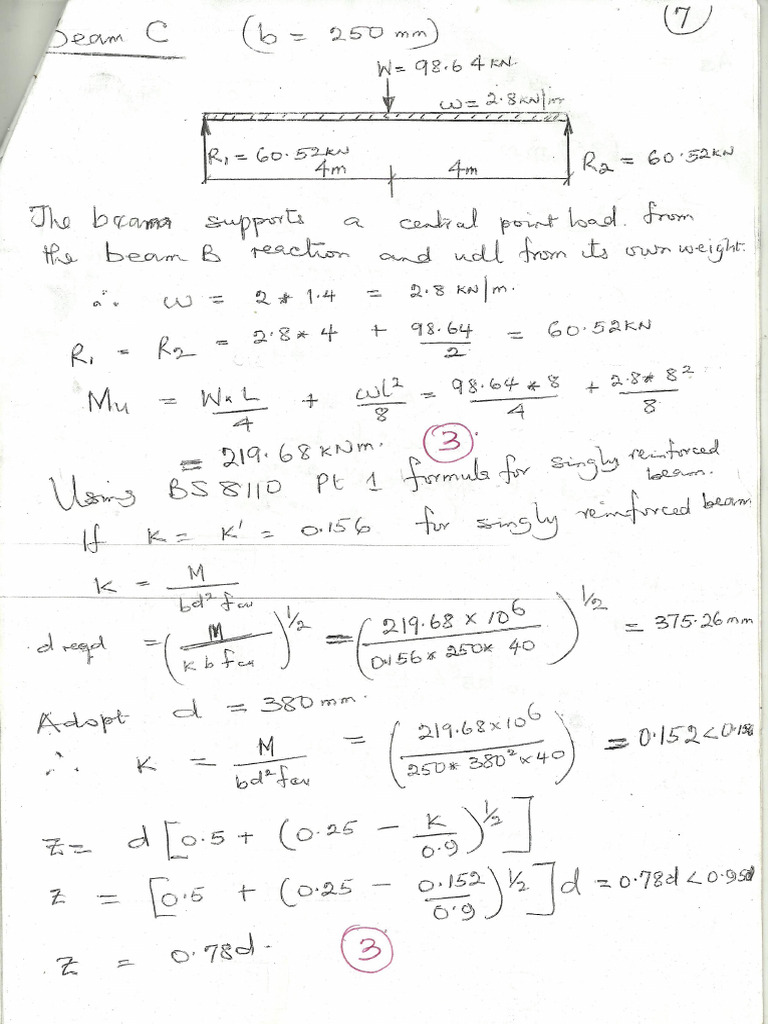 Beam C (b = 250 mm) 7
W = 98.64 KN.
w = 2.8 KN/m
R1 = 60.52KN
4m 4m
R2 = 60.52KN
The beam supports a central point load. from
the beam B reaction and udl from its own weight.
∴ w = 2 * 1.4 = 2.8 KN/m.
R1 = R2 = 2.8 * 4 + 98.64/2 = 60.52KN
Mu = W * L/4 + wl²/8 = 98.64 * 8/4 + 2.8 * 8²/8
= 219.68 KNm. 3
Using BS 8110 Pt 1 formula for singly reinforced
beam.
If K = K' = 0.156 for singly reinforced beam
K = M/bd²fcu
d reqd = (M/K b fcu)^1/2 = (219.68 x 10^6/0.156 * 250 * 40)^1/2 = 375.26 mm
Adopt d = 380 mm.
∴ K = M/bd²fcu = (219.68 x 10^6/250 * 380² x 40) = 0.152 < 0.156
z = d[0.5 + (0.25 - K/0.9)^1/2]
z = [0.5 + (0.25 - 0.152/0.9)^1/2]d = 0.78d < 0.95d
z = 0.78d. 3